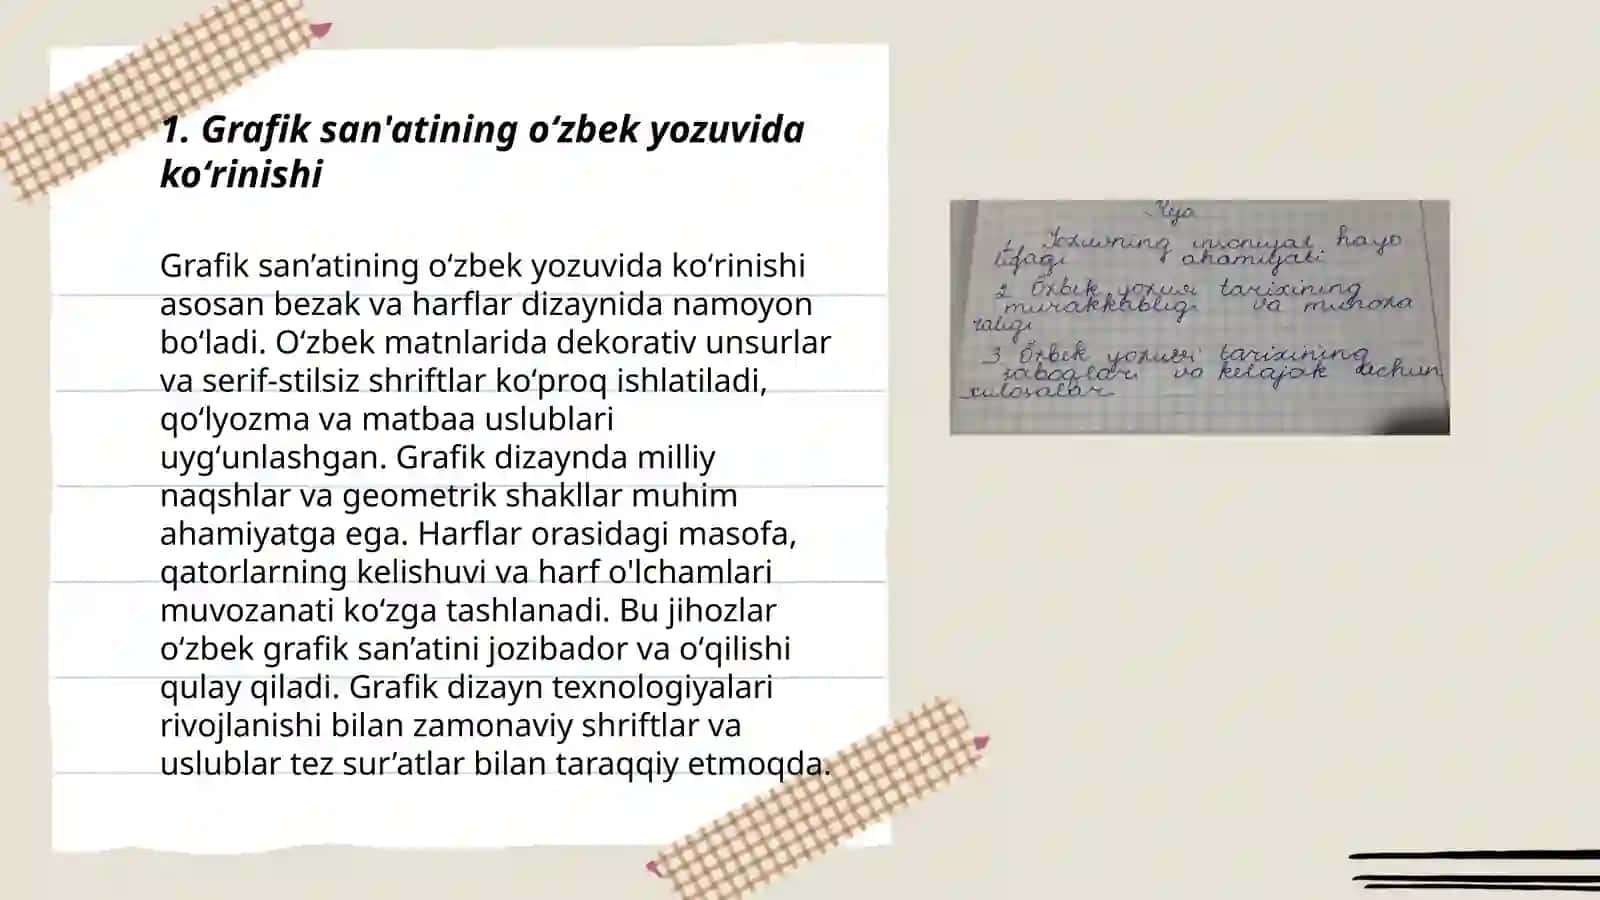 1. Grafik san'atining oʻzbek yozuvida
koʻrinishi
Grafik sanʼatining oʻzbek yozuvida koʻrinishi
asosan bezak va harflar dizaynida namoyon
boʻladi. Oʻzbek matnlarida dekorativ unsurlar
va serif-stilsiz shriftlar koʻproq ishlatiladi,
qoʻlyozma va matbaa uslublari
uygʻunlashgan. Grafik dizaynda milliy
naqshlar va geometrik shakllar muhim
ahamiyatga ega. Harflar orasidagi masofa,
qatorlarning kelishuvi va harf o'lchamlari
muvozanati koʻzga tashlanadi. Bu jihozlar
oʻzbek grafik sanʼatini jozibador va oʻqilishi
qulay qiladi. Grafik dizayn texnologiyalari
rivojlanishi bilan zamonaviy shriftlar va
uslublar tez surʼatlar bilan taraqqiy etmoqda.
1. Yozuvning insoniyat hayo
tidagi ahamiyati
2 Özbek yozuvi tarixining
murakkabligi va munoza
raligi
3 Özbek yozuvi tarixining
saboqlari va kelajak uchun
xulosalar